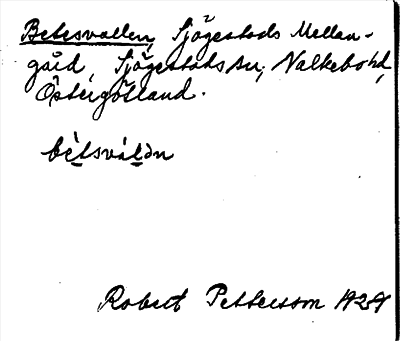 Betesvallen, Sjögestads Mellan-
gård, Sjögestads sn, Valkebo hd,
Östergötland.
bètsválən
Robert Pettersson 1929